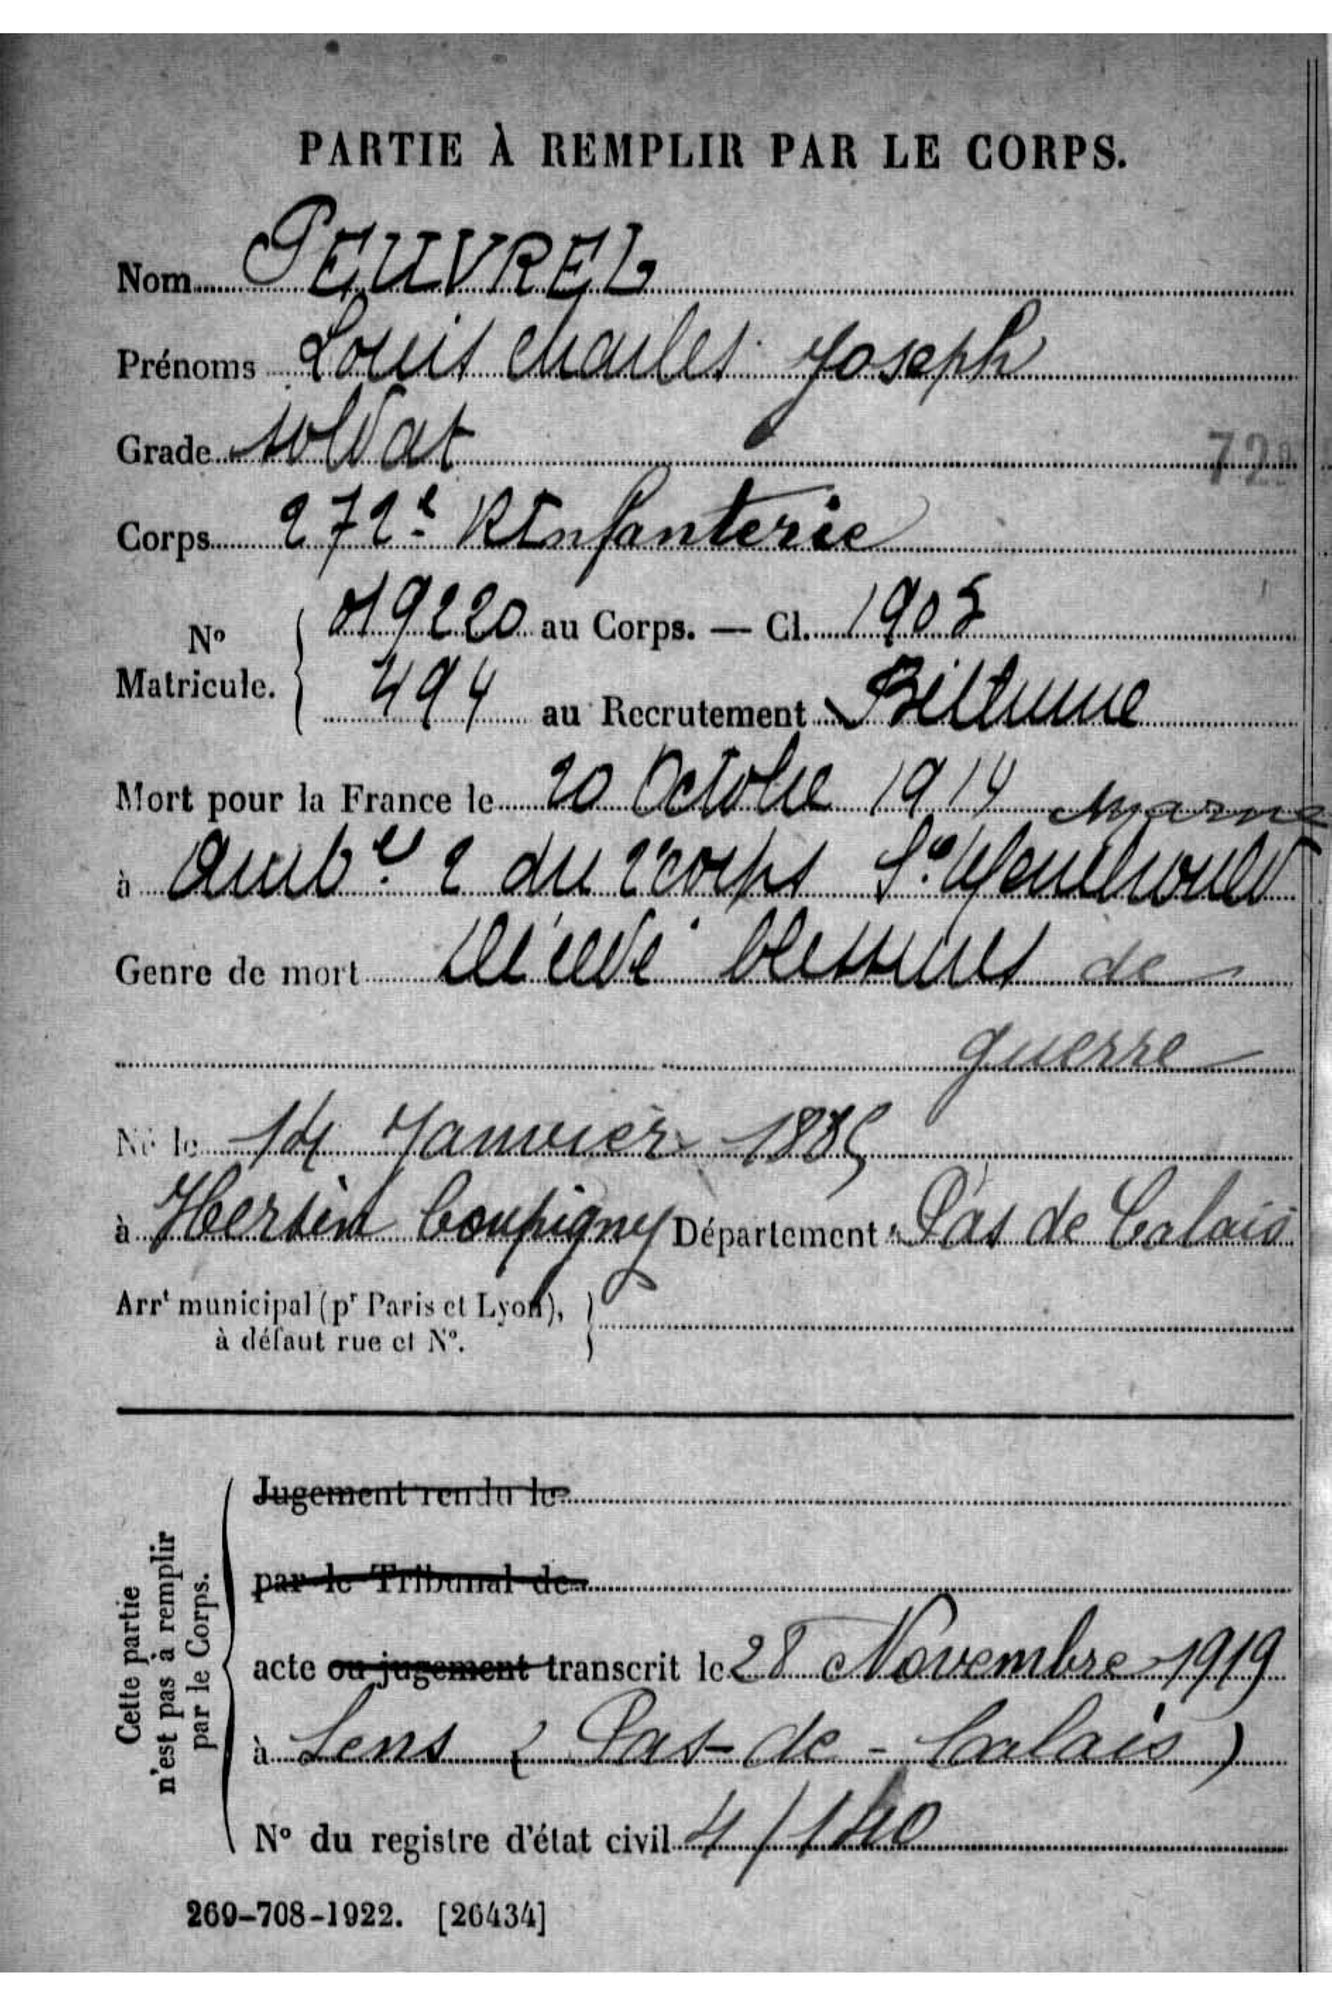 PARTIE À REMPLIR PAR LE CORPS.
Nom PEUVREL
Prénoms Louis Charles Joseph
Grade soldat
72
Corps 272e RInfanterie
No Matricule. 019220 au Corps. — Cl. 1905
494 au Recrutement Béthune
Mort pour la France le 20 Octobre 1914 Marne
à Ambce 2 du 2e corps Ste Menehould
Genre de mort blessures de
guerre
Né le 14 Janvier 1885
à Hersin Coupigny Département Pas de Calais
Arrt municipal (pr Paris et Lyon),
à défaut rue et No.
Cette partie
n'est pas à remplir
par le Corps.
Jugement rendu le
par le Tribunal de
acte ou jugement transcrit le 28 Novembre 1919
à Lens (Pas-de-Calais)
No du registre d'état civil 4/140
269-708-1922. [26434]